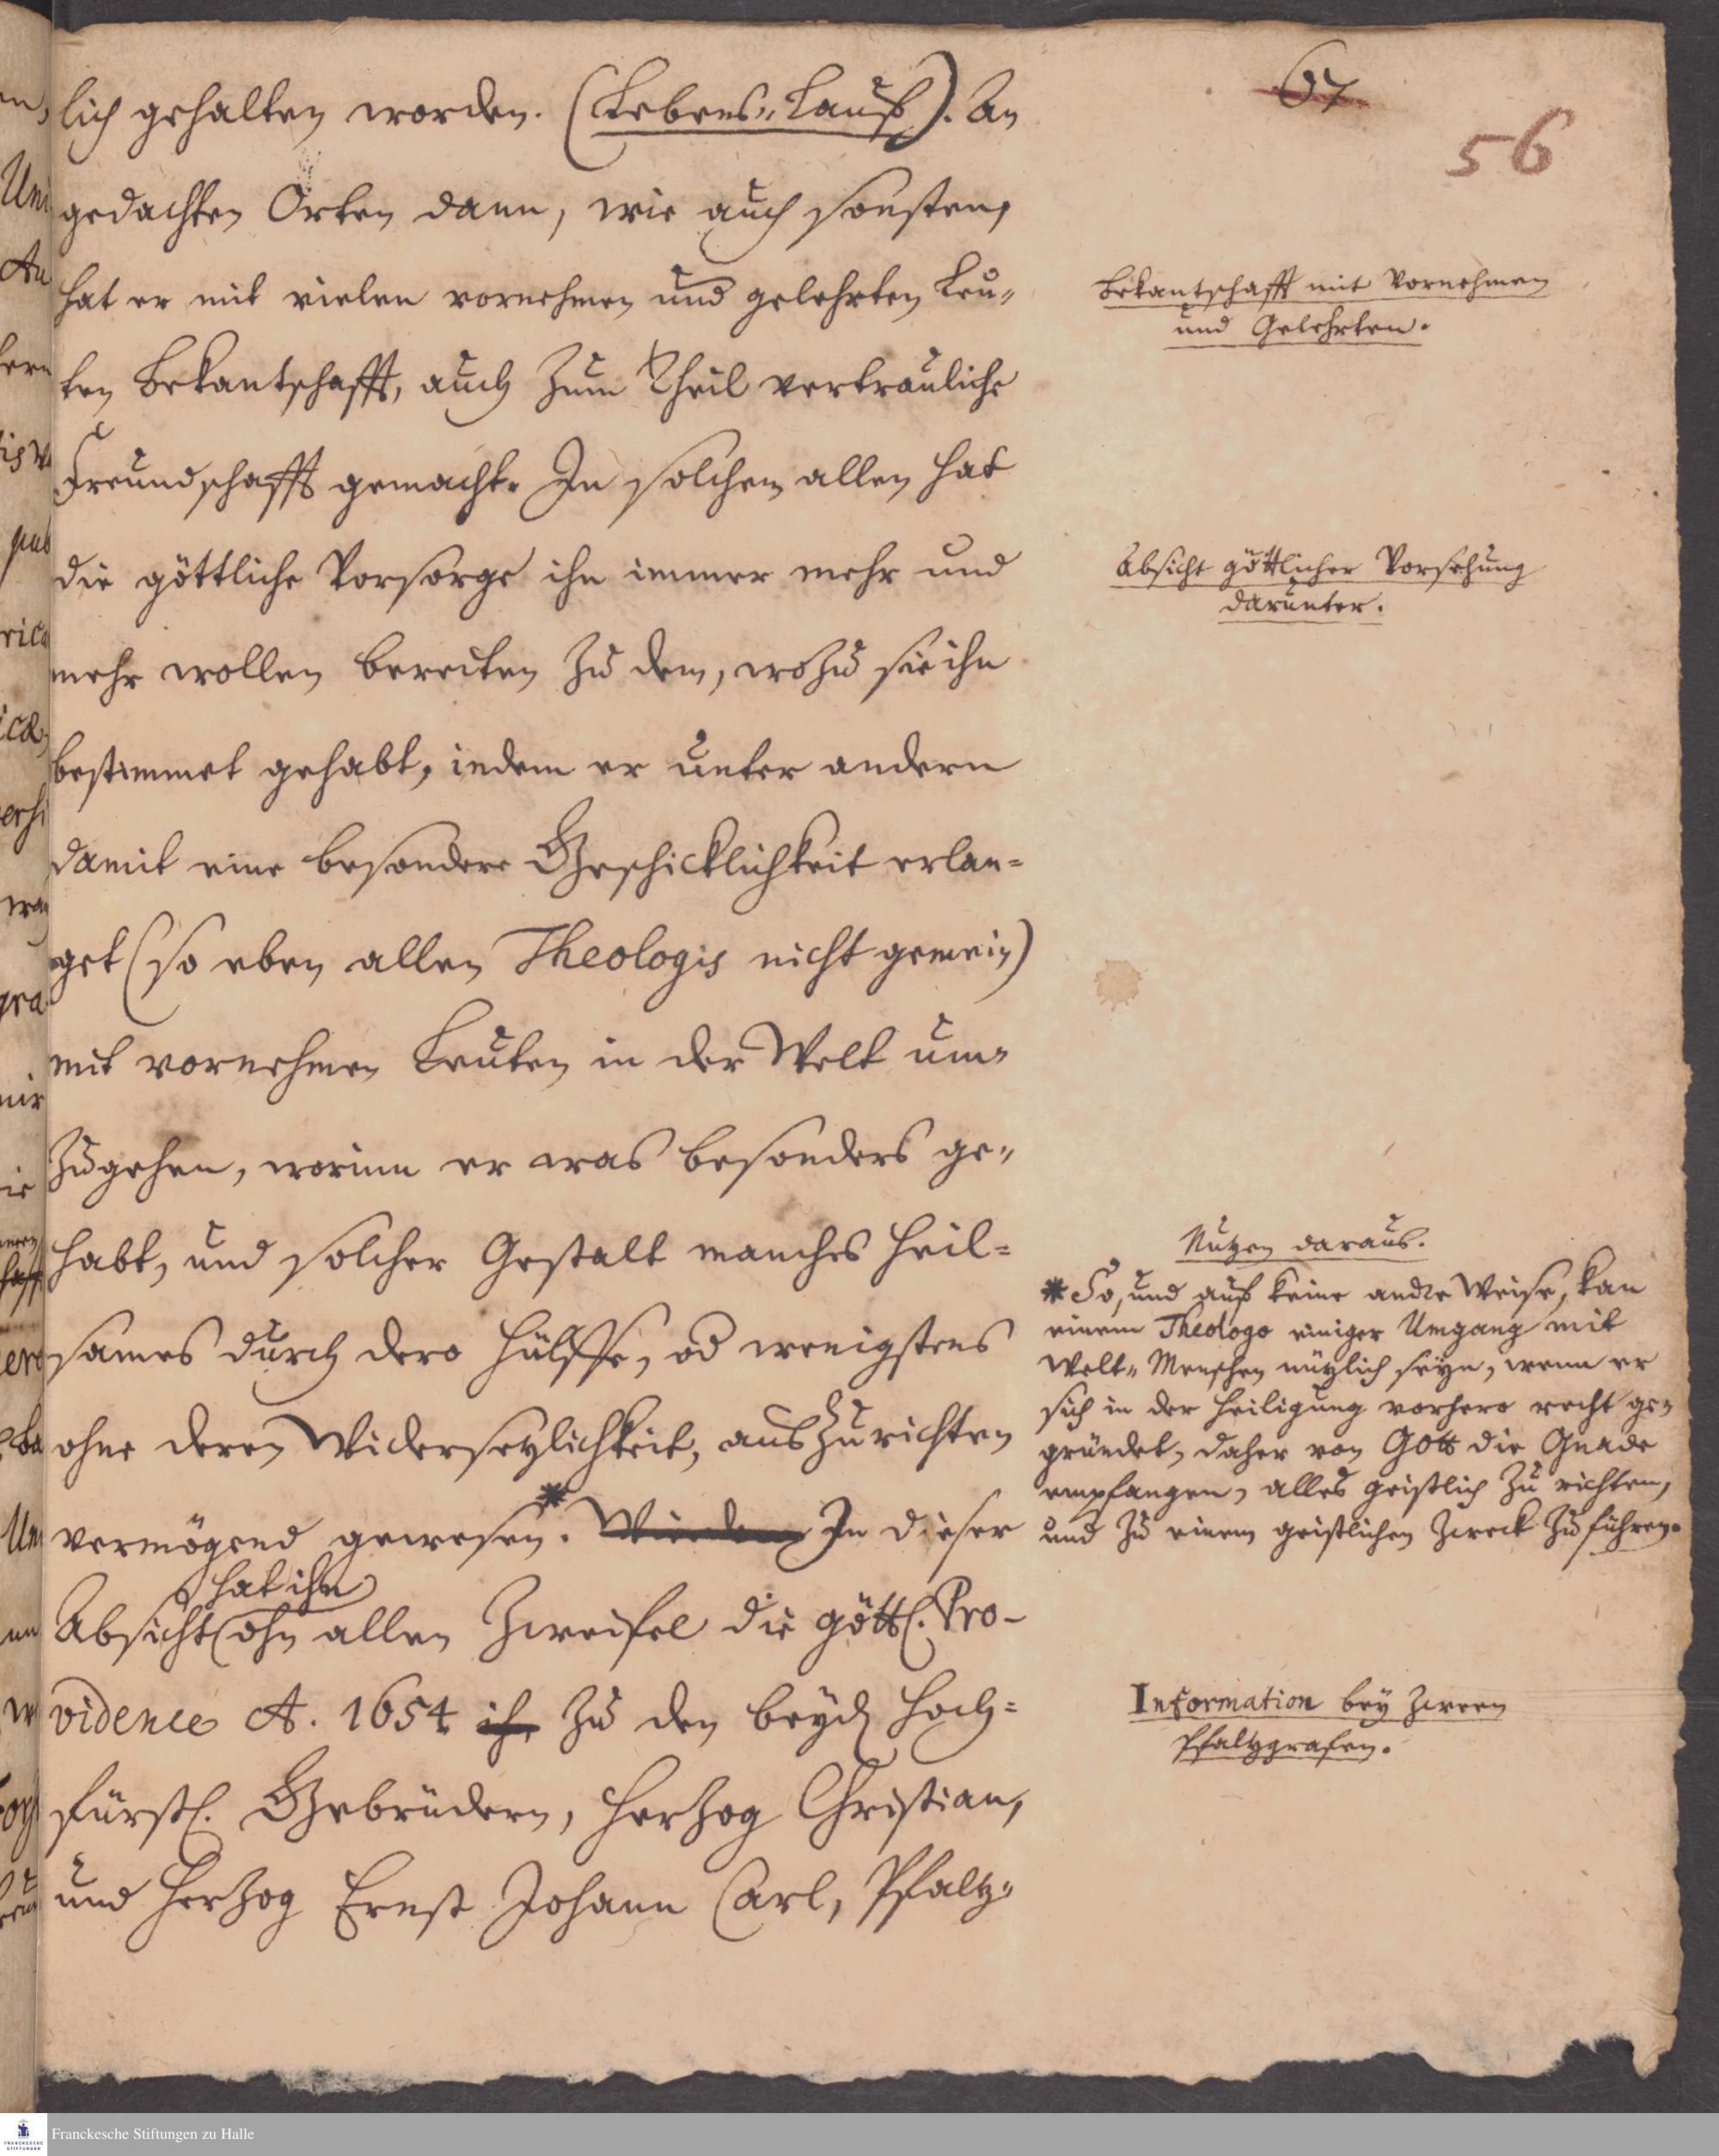 67
56
lich gehalten worden. (Lebens-Lauff). An
gedachten Orten dann, wie auch sonsten,
hat er mit vielen vornehmen und gelehrten Leu-
ten Bekantschafft, auch zum Theil vertrauliche
Freundschafft gemacht. In solchen allen hat
die göttliche Vorsorge ihn immer mehr und
mehr wollen bereiten zu dem, wozu sie ihn
bestimmet gehabt, indem er unter andern
damit eine besondere Geschicklichkeit erlan-
get (so eben allen Theologis nicht gemein)
mit vornehmen Leuten in der Welt um-
zugehen, worinn er was besonders ge-
habt, und solcher Gestalt manches heil-
sames durch dero Hülffe, od wenigstens
ohne deren Widersetzlichkeit, auszurichten
vermögend gewesen.* In dieser
hat ihn
Absicht ohn allen Zweifel die göttl. Pro-
vidence A. 1654 ih zu den beyd Hoch-
fürstl. Gebrüdern, Herzog Christian,
und Herzog Ernst Johann Carl, Pfaltz-
Bekantschafft mit Vornehmen
und Gelehrten.
Absicht göttlicher Vorsehung
darunter.
Nutzen daraus.
* So, und auf keine andre Weise, kan
einem Theologo einiger Umgang mit
Welt-Menschen nützlich seyn, wenn er
sich in der Heiligung vorhero recht ge-
gründet, daher von Gott die Gnade
empfangen, alles geistlich zu richten,
und zu einem geistlichen Zweck zu führen.
Information bey zween
Pfaltzgrafen.
Franckesche Stiftungen zu Halle